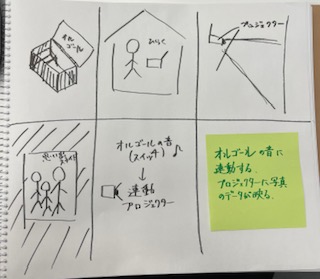 オル
ゴール
ひらく
プロジェクター
オルゴールの音
(スイッチ)
↓
連動
プロジェクター
オルゴールの音に
連動する。
プロジェクターに写真
のデータが映る。